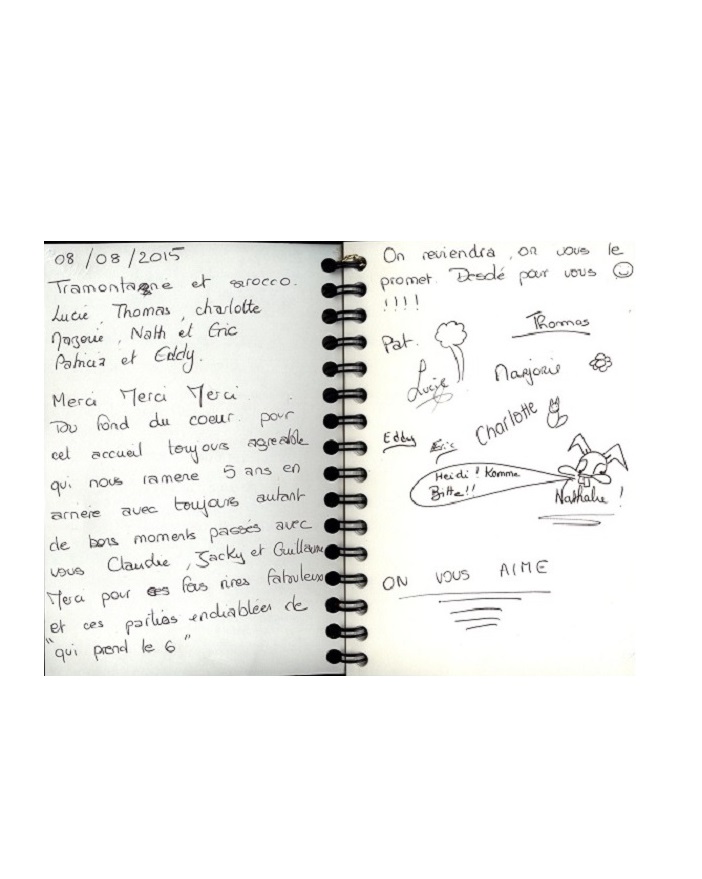 08/08/2015
Tramontagne et sirocco.
Lucie, Thomas, charlotte
Marjorie, Nath et Eric
Patricia et Eddy.
Merci Merci Merci
Du fond du coeur pour
cet accueil toujours agréable
qui nous ramène 5 ans en
arrière avec toujours autant
de bons moments passés avec
vous Claudie, Jacky et Guillaume
Merci pour ces fous rires fabuleux
et ces parties endiablées de
"qui prend le 6"
On reviendra, on vous le
promet. Desolé pour vous ☺
!!!!
Pat.
Thomas
Lucie
Marjorie
Charlotte
Eddy
Eric
Heidi! Komme
Bitte!!
Nathalie !
ON VOUS AIME